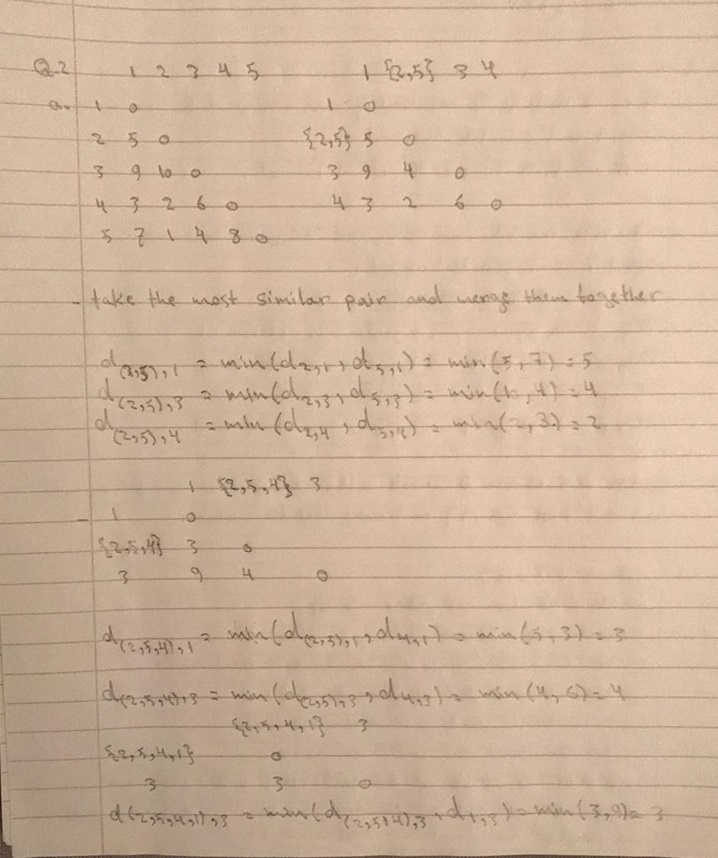 Q.2 1 2 3 4 5 1 {2,5} 3 4
a. 1 0 1 0
2 5 0 {2,5} 5 0
3 9 10 0 3 9 4 0
4 3 2 6 0 4 3 2 6 0
5 7 1 4 8 0
- take the most similar pair and merge them together
d(2,5),1 = min(d2,1, d5,1) = min(5, 7) = 5
d(2,5),3 = min(d2,3, d5,3) = min(10, 4) = 4
d(2,5),4 = min(d2,4, d5,4) = min(2, 3) = 2
1 {2,5,4} 3
- 1 0
{2,5,4} 3 0
3 9 4 0
d(2,5,4),1 = min(d(2,5),1, d4,1) = min(5, 3) = 3
d(2,5,4),3 = min(d(2,5),3, d4,3) = min(4, 6) = 4
{2,5,4,1} 3
{2,5,4,1} 0
3 3 0
d(2,5,4,1),3 = min(d(2,5,4),3, d1,3) = min(3, 9) = 3